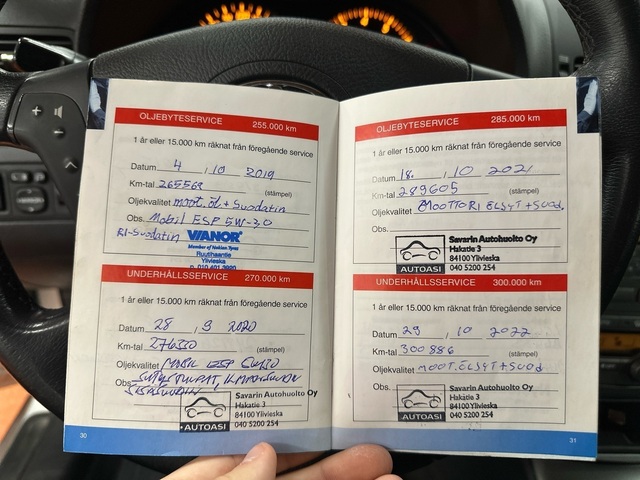 OLJEBYTESERVICE 255.000 km
1 år eller 15.000 km räknat från föregående service
Datum 4 / 10 2019
Km-tal 265568 (stämpel)
Oljekvalitet moot.öl + Suodatin
Obs. Mobil ESP 5W-30
RI-Suodatin WIANOR
Member of Nokian Tyres
Ruuthaantie
Ylivieska
UNDERHÅLLSSERVICE 270.000 km
1 år eller 15.000 km räknat från föregående service
Datum 28 / 9 2020
Km-tal 276330 (stämpel)
Oljekvalitet MOBIL ESP 5W30
Obs. SYTYSTULPAT, ILMANSUODATIN
Savarin Autohuolto Oy
Hakatie 3
84100 Ylivieska
040 5200 254
AUTOASI
30
OLJEBYTESERVICE 285.000 km
1 år eller 15.000 km räknat från föregående service
Datum 18. / 10 2021
Km-tal 289605 (stämpel)
Oljekvalitet MOOTTORI ÖLJYT + SUOD.
Obs.
Savarin Autohuolto Oy
Hakatie 3
84100 Ylivieska
040 5200 254
AUTOASI
UNDERHÅLLSSERVICE 300.000 km
1 år eller 15.000 km räknat från föregående service
Datum 29 / 10 2022
Km-tal 300886 (stämpel)
Oljekvalitet MOOT.ÖLJYT + SUOD
Obs.
Savarin Autohuolto Oy
Hakatie 3
84100 Ylivieska
040 5200 254
AUTOASI
31